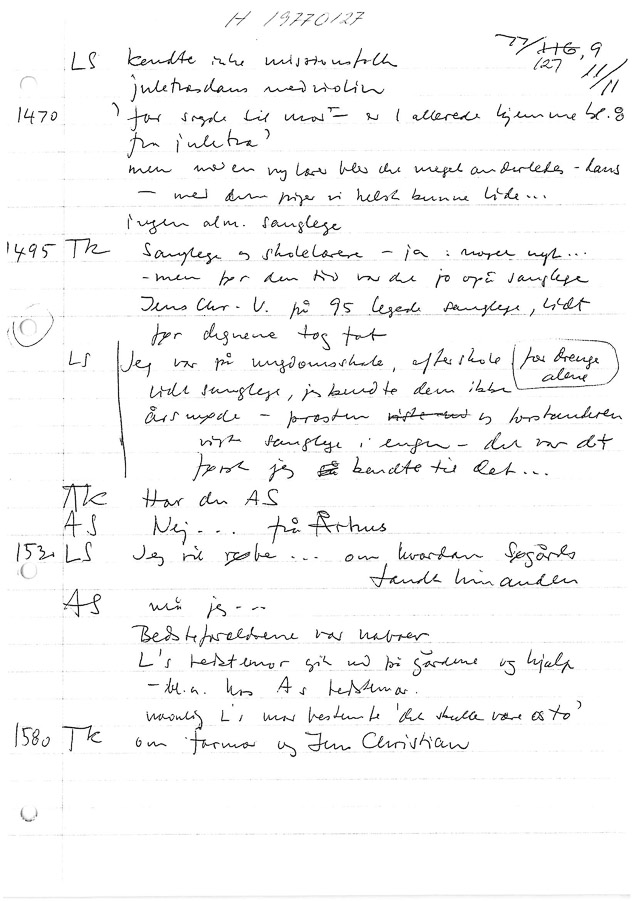 H 19770127
77/HG, 9
127
11/11
LS kendte ikke missionsfolk
juletræsdans med violin
1470 'far sagde til mor - er I allerede hjemme kl. 8
fra juletræ'
men med en ny lærer blev det meget anderledes - dans
- med dem piger vi helst kunne lide...
ingen alm. sanglege
1495 TK Sanglege og skolelærere - ja : noget nyt...
- men før den tid var det jo også sanglege
Jens Chr. V. på 95 legede sanglege, lidt
før degnene tog fat
LS Jeg var på ungdomsskole, efterskole (for drenge
alene)
lidt sanglege, jeg kendte dem ikke
årsmøde - præsten og forstanderen
sanglege i engen - det var det
første jeg kendte til det...
TK Har du AS
AS Nej... på Århus
1530 LS Jeg vil ... om hvordan Søgårds
fandt hinanden
AS må jeg...
Bedsteforældrene var naboer
L's bedstemor gik ud på gårdene og hjalp
- bl.a. hos A s bedstemor.
L's mor bestemte 'det skulle være os to'
1580 TK om farmor og Jens Christian